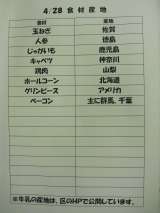 4.28 食材産地
食材 産地
玉ねぎ 佐賀
人参 徳島
じゃがいも 鹿児島
キャベツ 神奈川
鶏肉 山梨
ホールコーン 北海道
グリンピース アメリカ
ベーコン 主に群馬、千葉
※牛乳の産地は、区のHPで公開しています。